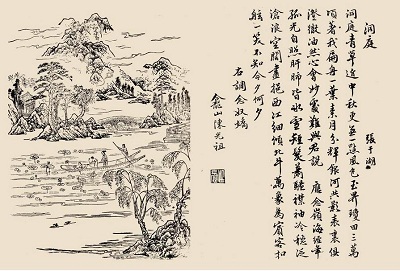 洞庭 張于湖
洞庭青草近中秋更無一點風色玉界瓊田三萬
頃著我扁舟一葉素月分輝銀河共影表裏俱
澄徹油然心會妙處難與君說 應念嶺海經年
孤光自照肝肺皆氷雪短髮蕭騷襟袖冷穩泛
滄浪空闊盡挹西江細傾北斗萬象為賓客扣
舷一笑不知今夕何夕
右調念奴嬌
山陳光祖